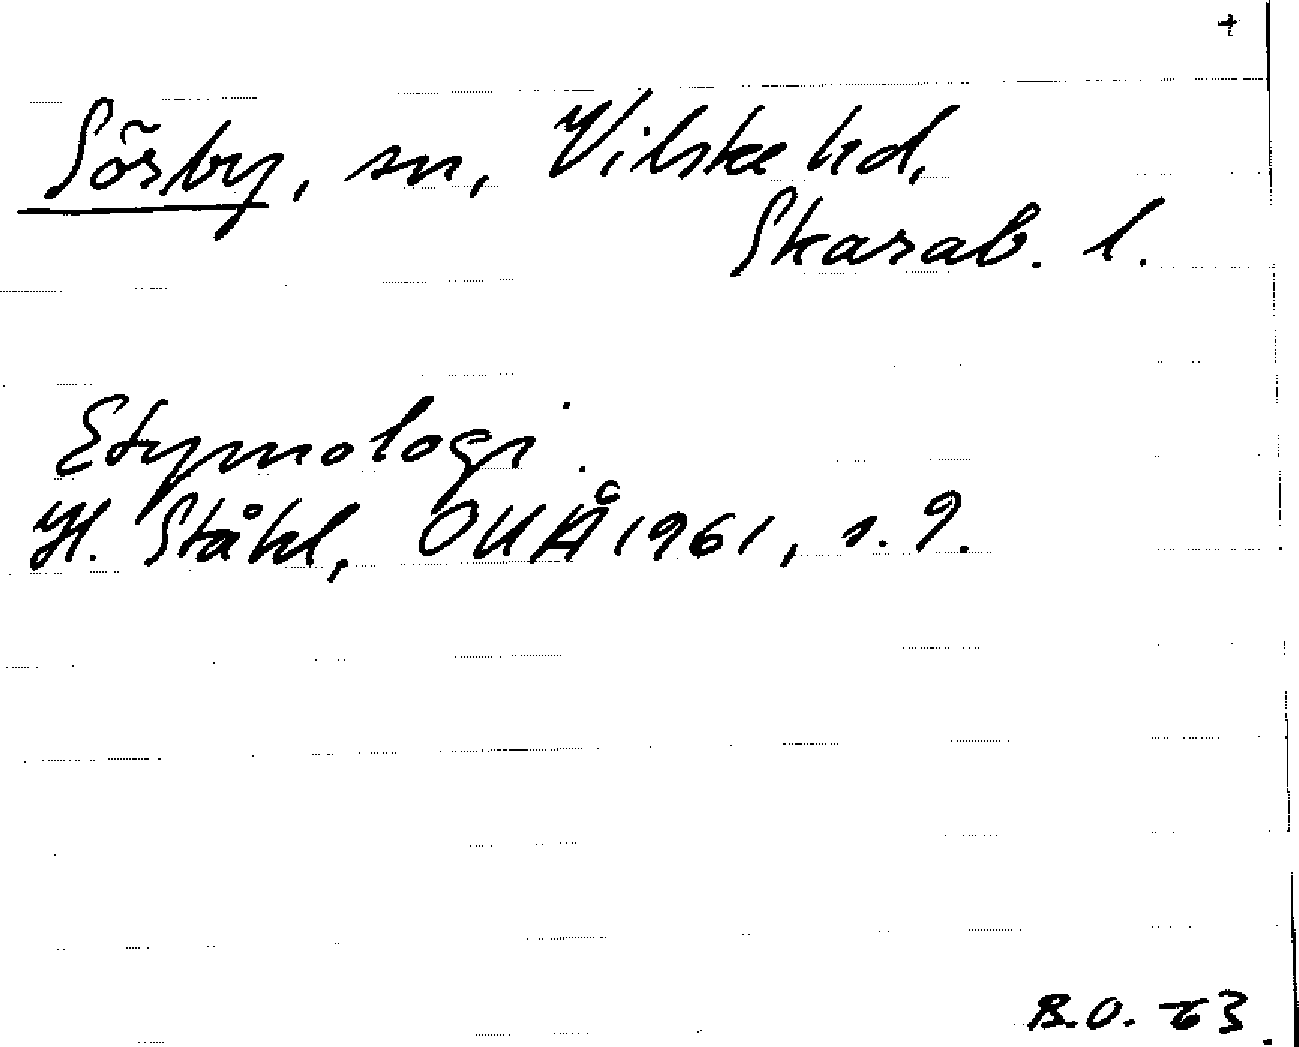 +
Sörby, sn, Vilske hd,
Skarab. l.
Etymologi.
H. Ståhl, OUÅ 1961, s. 9.
B.O. 63